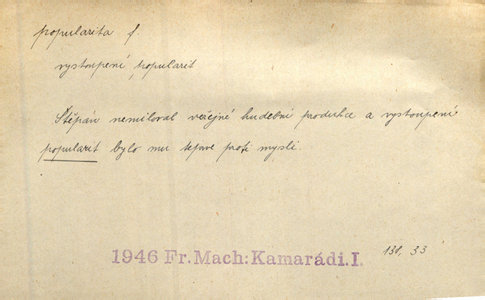 popularita f.
vystoupení popularit
Štěpán nemiloval veřejné hudební produkce a vystoupení
popularit bylo mu teprve proti mysli.
1946 Fr. Mach: Kamarádi. I. 131, 33